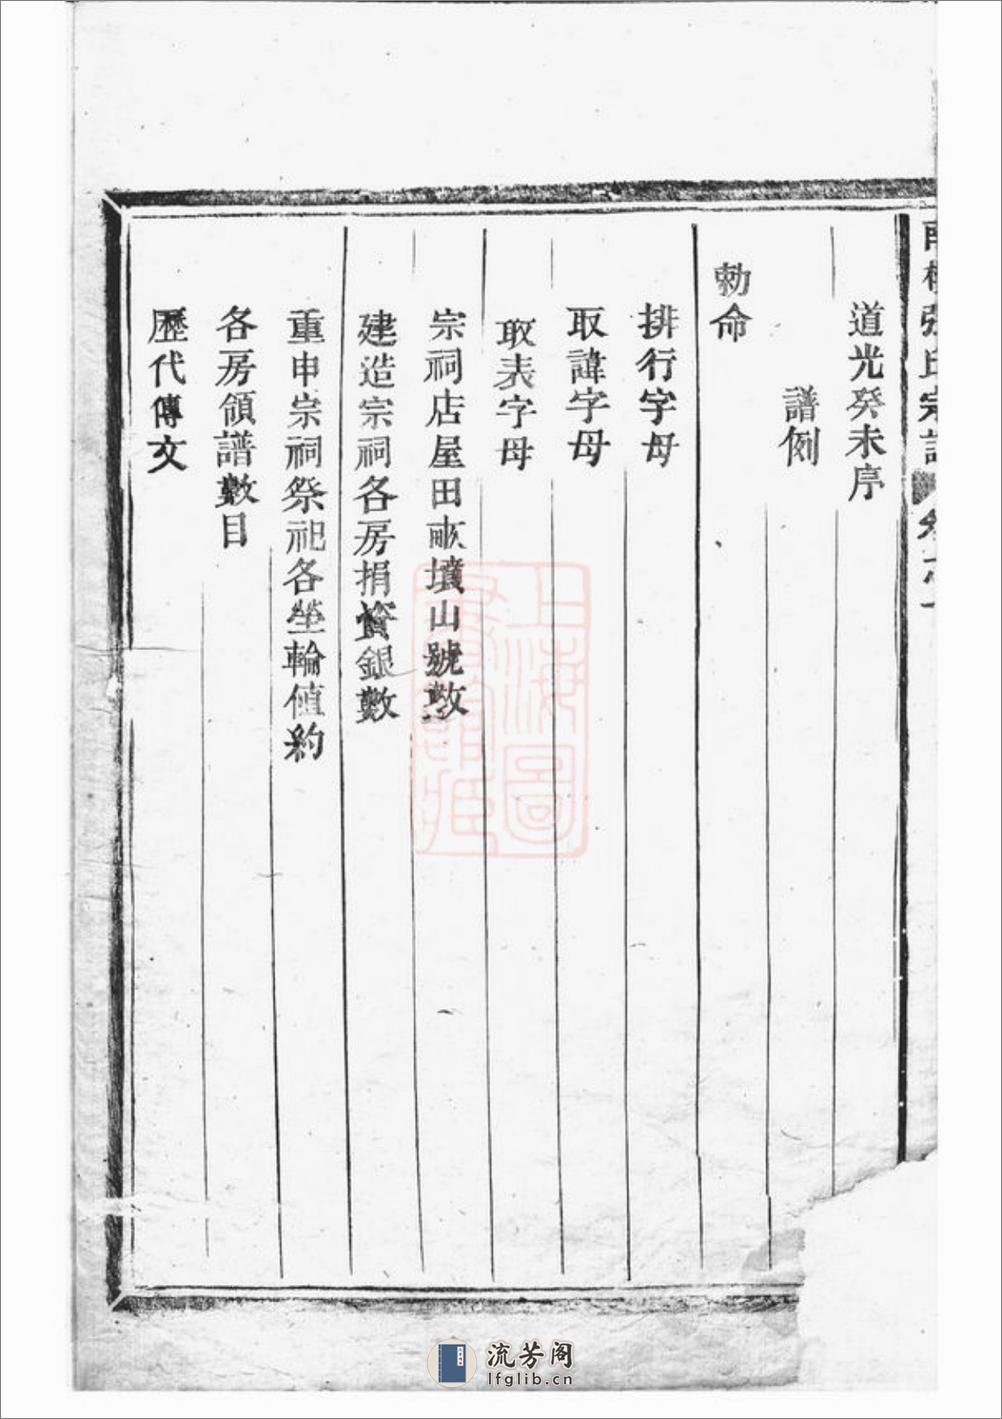 張氏宗譜
道光癸未序
譜例
勅命
排行字母
取諱字母
取表字母
宗祠店屋田畝墳山號數
建造宗祠各房捐資銀數
重申宗祠祭祀各塋輪值約
各房領譜數目
歷代傳文
上海圖書館藏
流芳阁
lfglib.cn